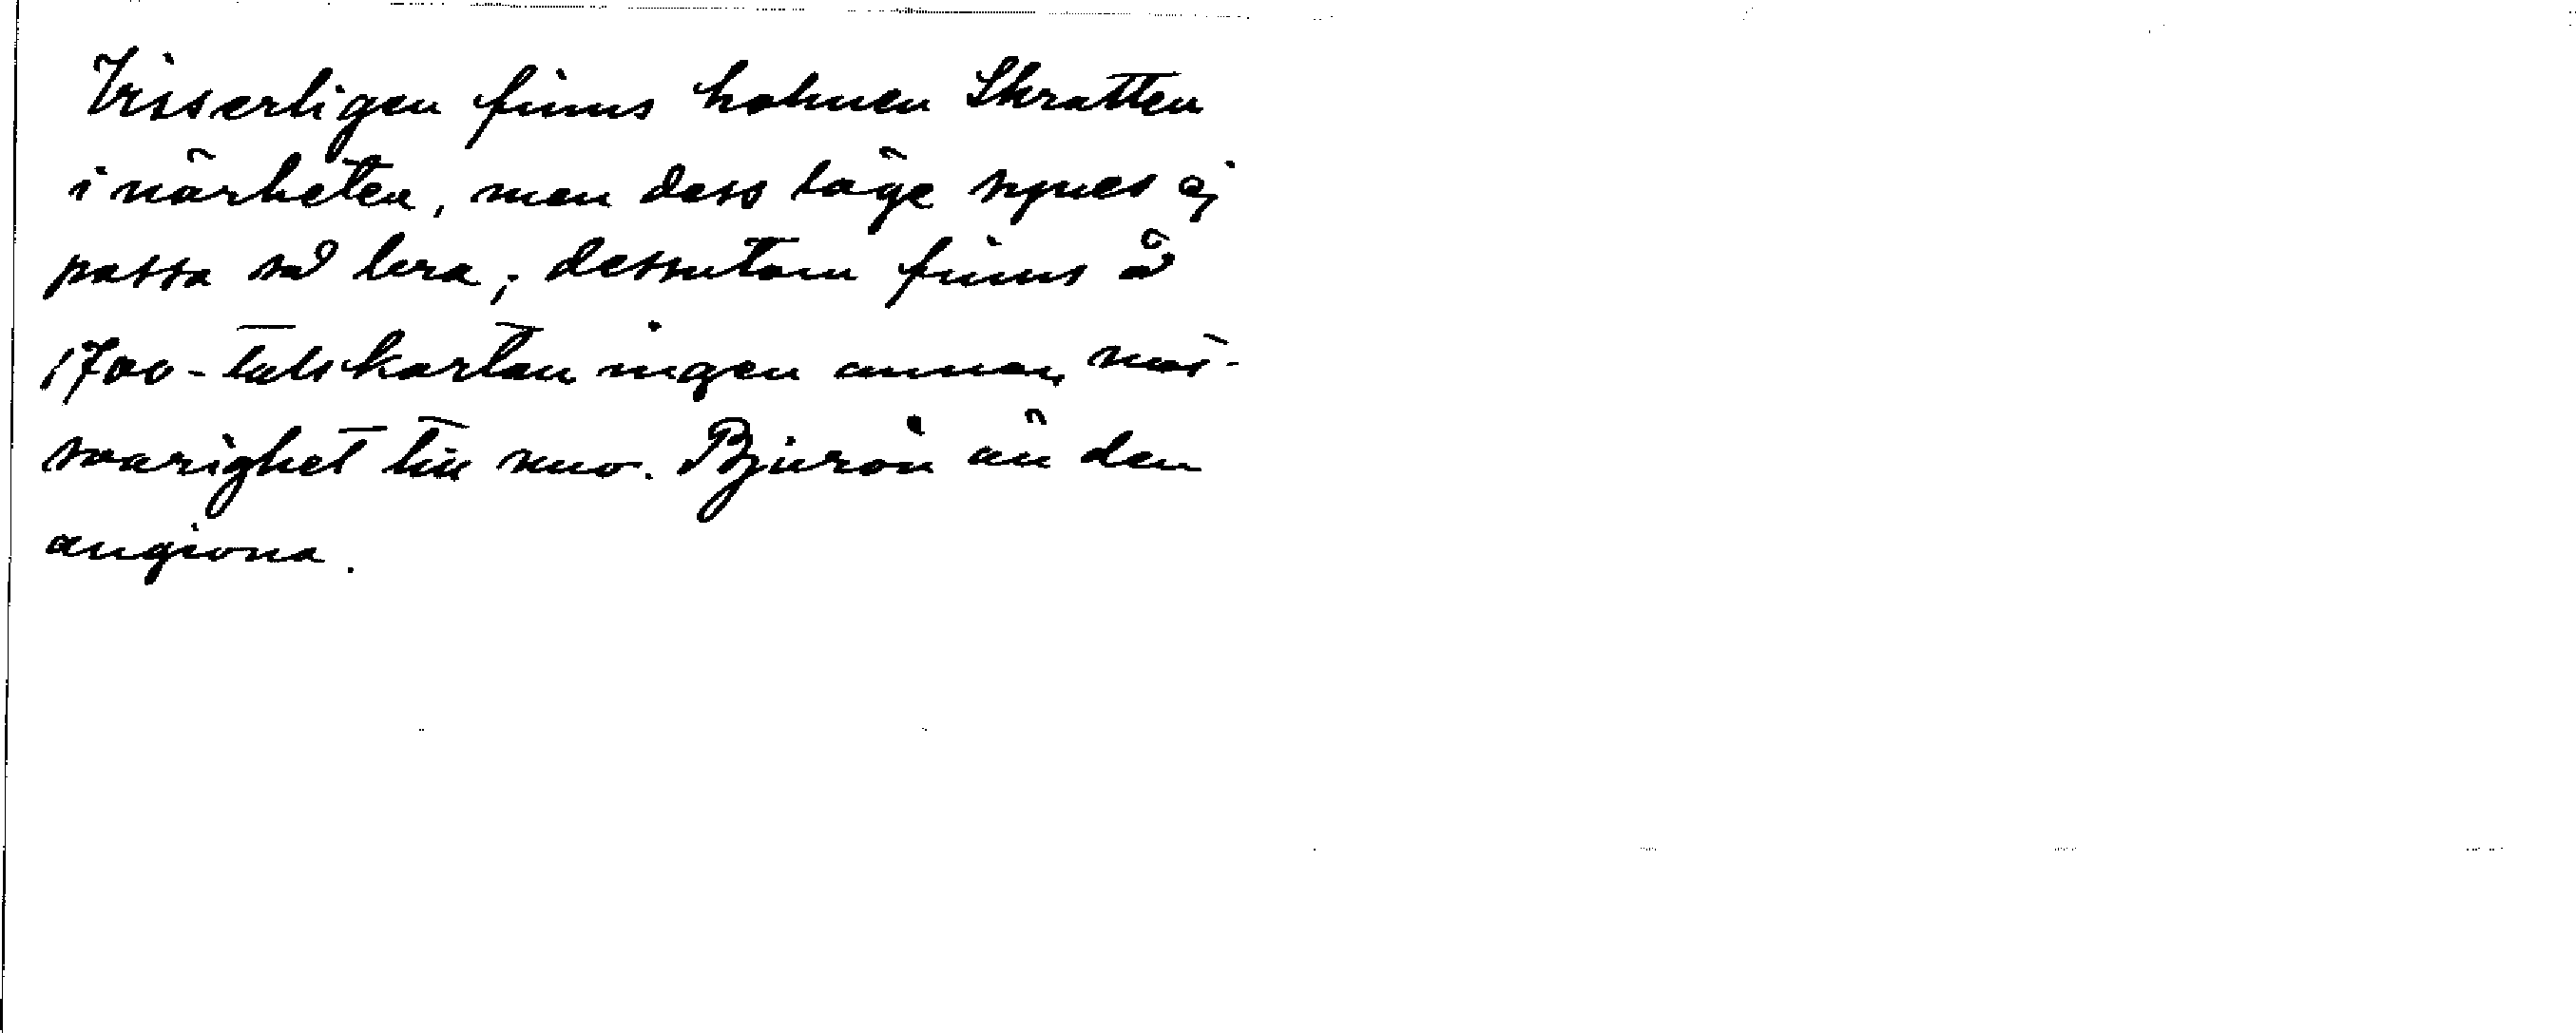 Visserligen finns holmen Skratten
i närheten, men dess läge synes ej
passa så bra; dessutom finns å
1700-talskartan ingen annan mot-
svarighet till nuv. Bjurön än den
angivna.